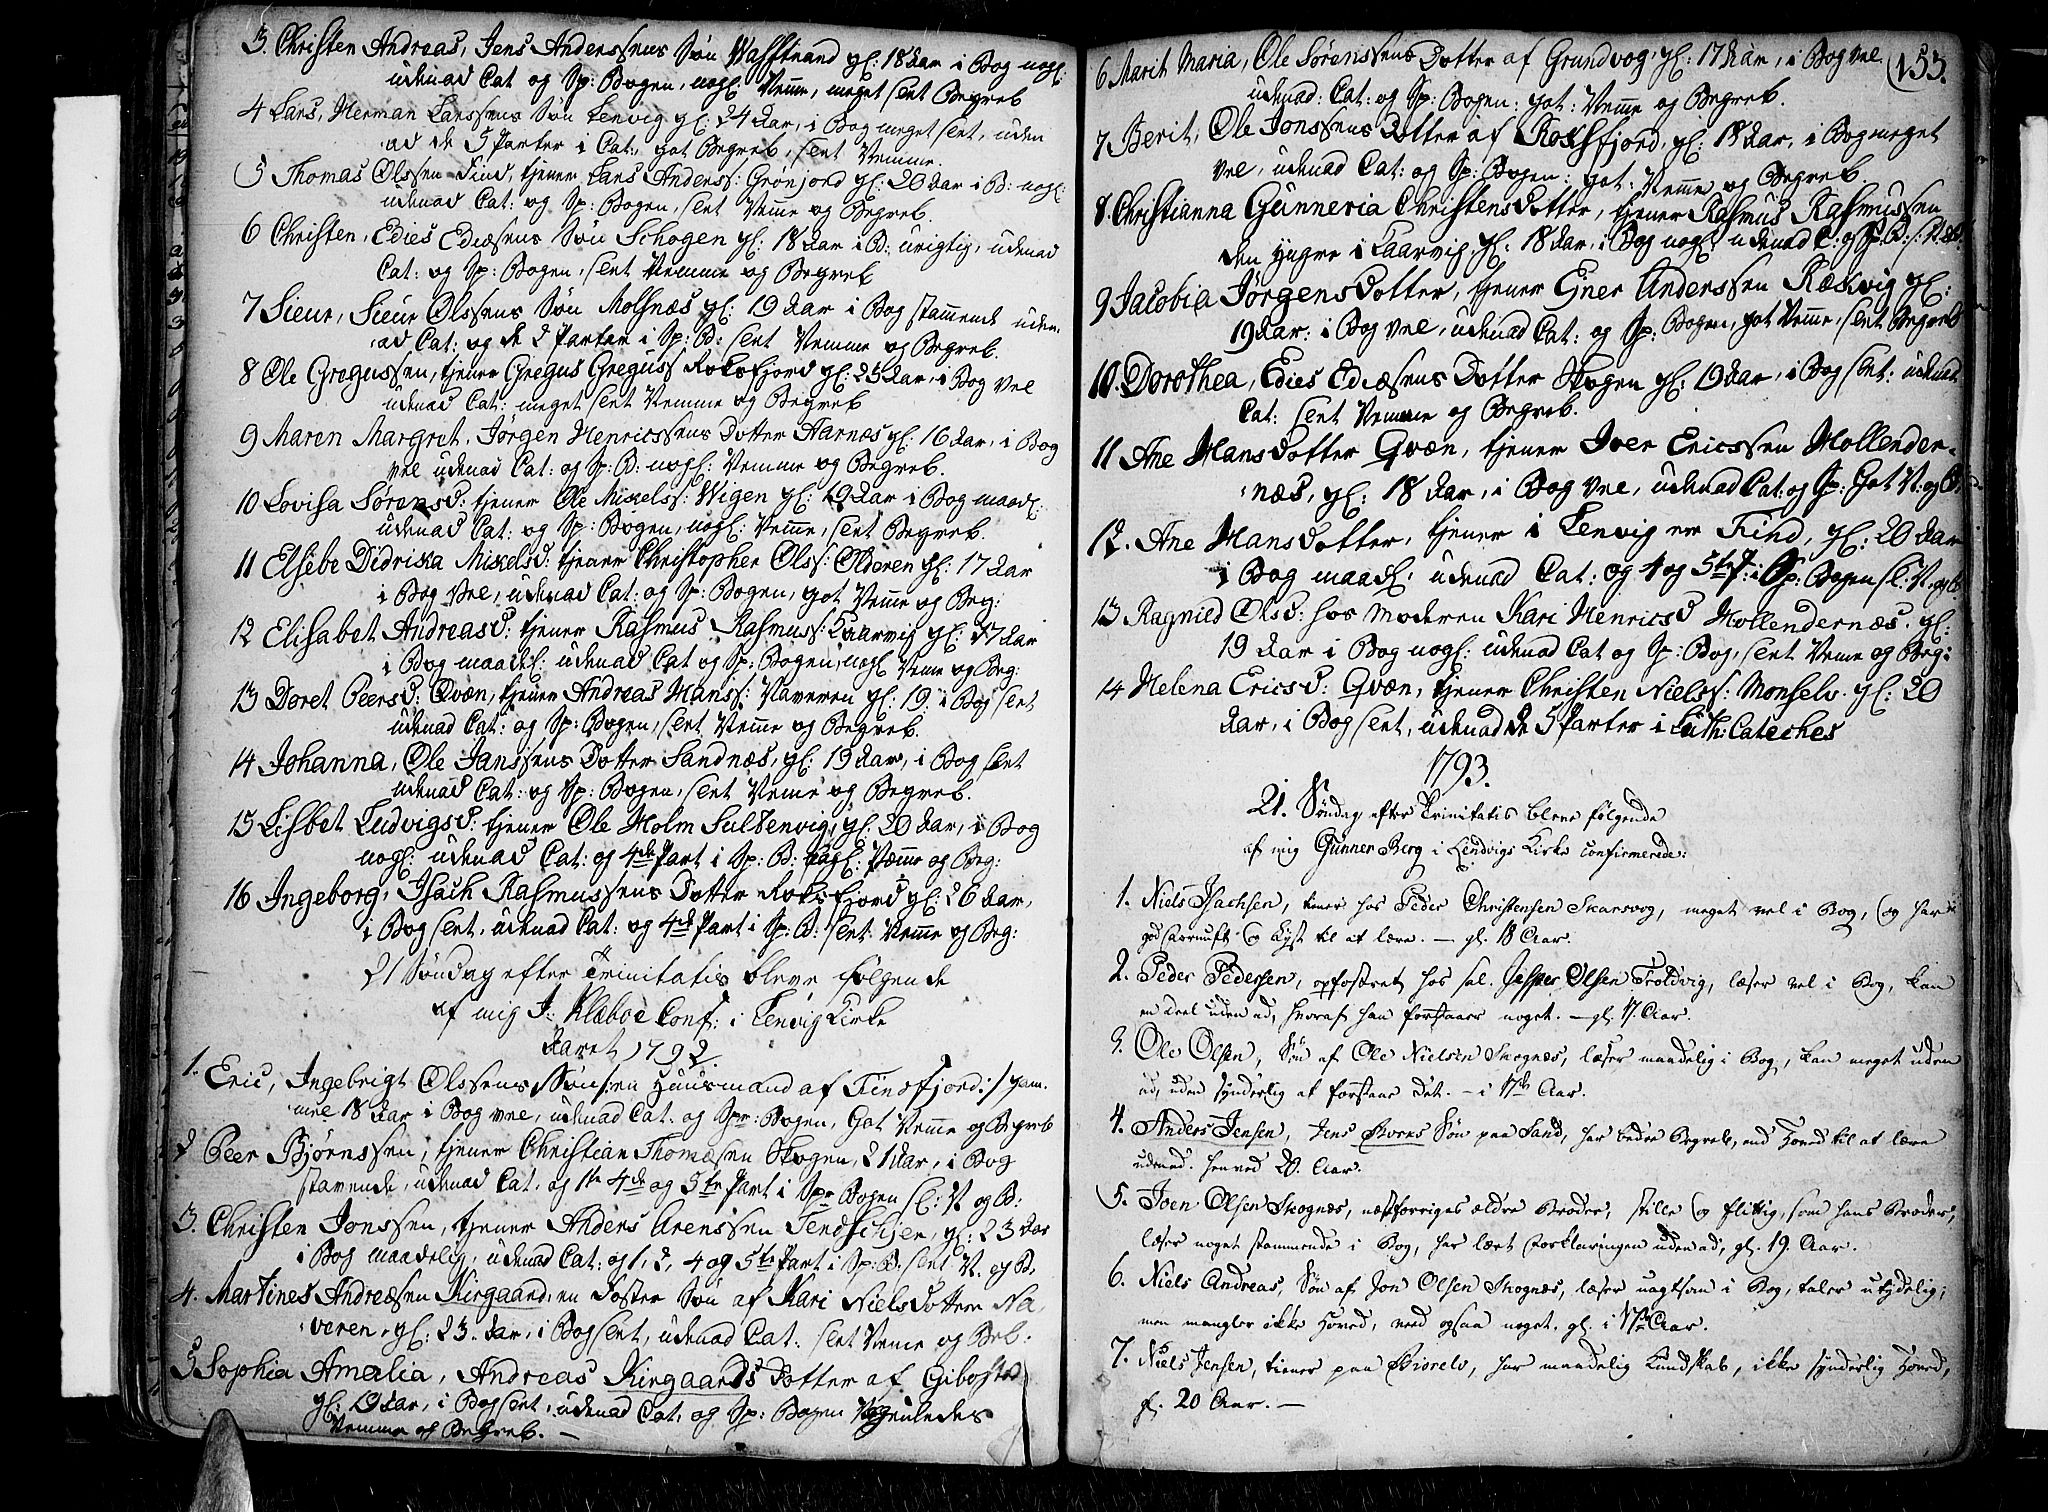 3. Christen Andreas, Jens Anderssens Søn Walstrand gl: 18 Aar i Bog nogl:
udenad Cat og Sp: Bogen, nogl: Nemme, meget slet Begreb
4 Lars, Herman Larssens Søn Lenvig gl: 24 Aar, i Bog meget slet, uden
ad de 5 Parter i Cat:, got Begreb, slet Nemme.
5 Thomas Olssen Find, tjener Lars Anderss: Grønjord gl: 20 Aar i B: nogl:
udenad Cat: og Sp: Bogen, slet Nemme og Begreb.
6 Christen, Edies Ediæsens Søn Schogen gl: 18 Aar i B: urigtig, udenad
Cat: og Sp: Bogen, slet Nemme og Begreb
7 Sieur, Sieur Olssens Søn Molsnæs gl: 19 Aar i Bog stammende uden-
ad Cat: og de 2 Parter i Sp: B: slet Nemme og Begreb.
8 Ole Gregussen, tjener Gregus Greguss Roksfjord gl: 25 Aar, i Bog vel
udenad Cat: meget slet Nemme og Begreb
9 Maren Margret, Jørgen Henricssens Dotter Aarnæs gl: 16 Aar, i Bog
vel udenad Cat: og Sp: B: nogl: Nemme og Begreb.
10 Lovisa Sørensd: tjener Ole Mikels: Wigen gl: 19 Aar i Bog maadl:
udenad Cat: og Sp: Bogen, nogl: Nemme, slet Begreb.
11 Elsebe Didrika Mikelsd: tjener Christopher Ols: Olderen gl: 17 Aar
i Bog vel, udenad Cat: og Sp: Bogen, got Nemme og Beg:
12 Elisabet Andreasd: tjener Rasmus Rasmus: Laarvig gl: 17 Aar
i Bog maadel: udenad Cat og Sp: Bogen, nogl Neme og Beg:
13 Doret Peersd: Qvæn, tjener Andreas Hans: Naveren gl: 19. i Bog slet
udenad Cat: og Sp: Bogen, slet Nemme og Begreb.
14 Johanna, Ole Janssens Dotter Sandnæs, gl: 19 Aar, i Bog slet
udenad Cat: og Sp: Bogen, slet Neme og Begreb.
15 Lisbet Ludvigsd: tjener Ole Holm Sultenvig, gl: 20 Aar, i Bog
nogl: udenad Cat: og 4de Part i Sp: B: nogl: Næmme og Beg:
16 Ingeborg, Isach Rasmussens Dotter Roksfjord gl: 26 Aar,
i Bog slet, udenad Cat: og 4de Part i Sp: B: slet Nemme og Beg:
21 Søndag efter Trinitatis bleve følgende
af mig J: Klæboe Conf: i Lenvig Kirke
Aaret 1792.
1. Eric, Ingebrigt Olssens Søn en Huusmand af Findfjord :/ gam-
mel 18 Aar i Bog vel, udenad Cat. og Spr: Bogen, Got Nemme og Begreb
2 Peer Bjørnssen, tjener Christian Thomæsen Skogen, 21 Aar, i Bog
stavende, udenad Cat. og 1te 4de og 5te Part i Spr Bogen sl: N. og B:
3. Christen Jonssen, tjener Anders Arenssen Tendschjer, gl: 23 Aar
i Bog maadelig, udenad Cat: og 1, 2, 4 og 5te Part i Sp: B. slet N. og B.
4. Martines Andreæsen Kirgaard, en Foster Søn af Kari Nielsdotter Na-
veren, gl: 23. Aar, i Bog slet, udenad Cat. slet Neme og Beb:
5 Sophia Amalia, Andreas Kirgaards Dotter af Gibostad
gl: 19 Aar, i Bog slet, udenad Cat: og Sp: Bogen
Nemme og Begreb. —
153.
6 Marit Maria, Ole Sørenssens Dotter af Grundvog, gl: 17 Aar, i Bog vel
udenad: Cat: og Sp: Bogen: got: Nemme og Begreb.
7 Berit, Ole Jonssens Dotter af Roksfjord, gl: 18 Aar, i Bog meget
vel, udenad Cat: og Sp: Bogen: got: Nemme og Begreb.
8. Christianna Gunneria Christensdotter, tjener Rasmus Rasmussen
den yngre i Laarvig gl: 18 Aar, i Bog nogl udenad C: og Sp. B:
9 Jacobia Jørgensdotter, tjener Einer Anderssen Ræskvig gl:
19 Aar: i Bog vel, udenad Cat: og Sp: Bogen, got Nemme, slet Begreb
10. Dorothea, Edies Ediæsens Dotter Skogen gl: 19 Aar, i Bog slet: udenad
Cat: slet Nemme og Begreb.
11 Ane Hansdotter Qvæn, tjener Iver Ericssen Hollender-
næs, gl: 18 Aar, i Bog vel, udenad Cat: og Sp: Got N: og B.
12. Ane Hansdotter, tjener i Lenvig en Find, gl: 20 Aar
i Bog maadl: udenad Cat: og 4 og 5te P: i Sp: Bogen sl: N. og B
13 Ragnild Olsd: hos Moderen Kari Henricsd Hollendernæs. gl:
19 Aar i Bog nogl: udenad Cat og Sp: Bog, slet Neme og Beg:
14 Helena Ericsd: Qvæn, tjener Christen Niels: Monselv. gl: 20
Aar, i Bog slet, udenad de 5 Parter i Luth: Cateches
1793.
21. Søndag efter Trinitatis bleve følgende
af mig Gunner Berg i Lendvigs Kirke confirmerede:
1. Niels Isachsen, tiener hos Peder Christensen Skarsvog, meget vel i Bog, (og har
god Fornuft og Lyst til at lære. — gl. 18 Aar.
2. Peder Pedersen, opfostret hos sal. Jesper Olsen Troldvig, læser vel i Bog, kan
en Deel uden ad, hvoraf han forstaaer noget. — gl. 17. Aar.
3. Ole Olsen, Søn af Ole Nielsen Skognæs, læser maadelig i Bog, kan meget uden
ad, uden synderlig at forstaae det. — i 17de Aar.
4. Anders Jensen, Jens Borks Søn paa Sand, har bedre Begreb, end Hoved til at lære
udenad. henved 20. Aar.
5. Joen Olsen Skognæs, næstforriges ældre Broder, stille og flittig, som hans Broder,
læser noget stammende i Bog, har lært Forklaringen uden ad, gl. 19. Aar.
6. Niels Andreas, Søn af Jon Olsen Skognæs, læser uagtsom i Bog, taler utydelig;
men mangler ikke Hoved, veed ogsaa noget. gl. i 17de Aar.
7. Niels Jensen, tiener paa Biorelv, har maadelig Kundskab, ikke synderlig Hoved,
gl. 20 Aar. —